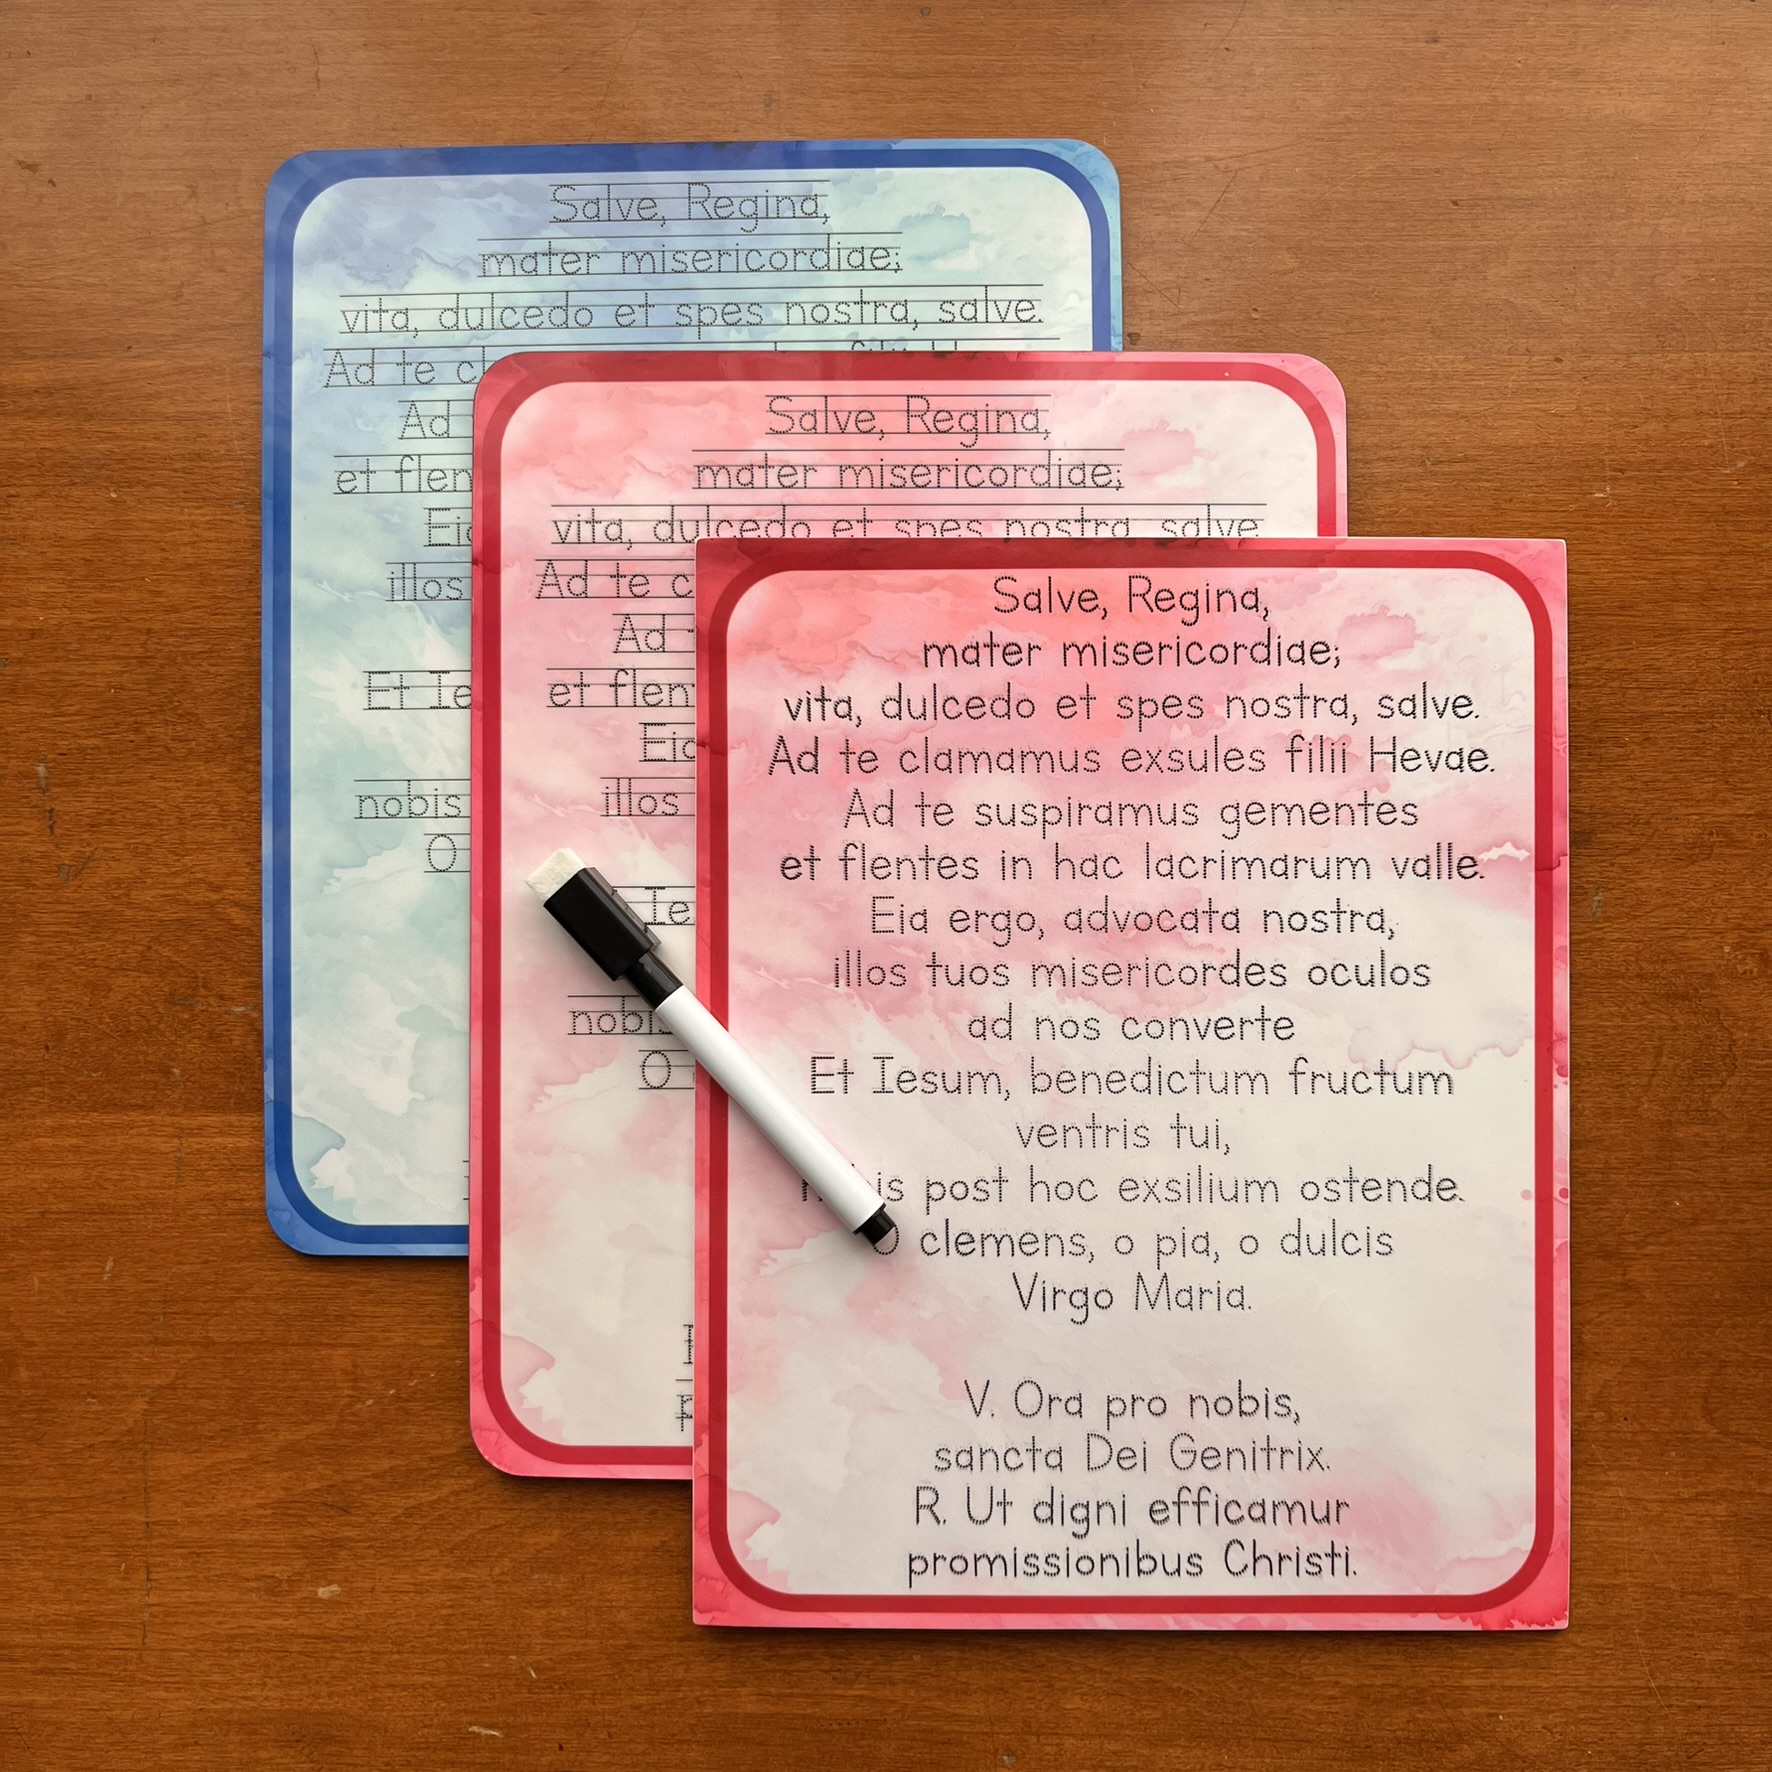 Salve, Regina,
mater misericordiae;
vita, dulcedo et spes nostra, salve.
Ad te
Ad
et
Eia
illos
Et
nobis
O
Salve, Regina,
mater misericordiae;
vita, dulcedo et spes nostra, salve
Ad te
Ad
et
Eia
illos
O
Salve, Regina,
mater misericordiae;
vita, dulcedo et spes nostra, salve.
Ad te clamamus exsules filii Hevae.
Ad te suspiramus gementes
et flentes in hac lacrimarum valle.
Eia ergo, advocata nostra,
illos tuos misericordes oculos
ad nos converte
Et Iesum, benedictum fructum
ventris tui,
post hoc exsilium ostende.
O clemens, o pia, o dulcis
Virgo Maria.
V. Ora pro nobis,
sancta Dei Genitrix.
R. Ut digni efficamur
promissionibus Christi.